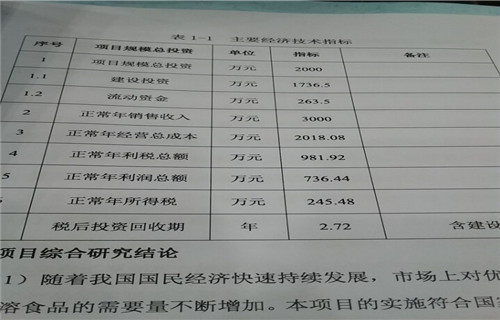 表 1-1 主要经济技术指标
序号 项目规模总投资 单位 指标 备注
1 项目规模总投资 万元 2000
1.1 建设投资 万元 1736.5
1.2 流动资金 万元 263.5
2 正常年销售收入 万元 3000
3 正常年经营总成本 万元 2018.08
4 正常年利税总额 万元 981.92
正常年利润总额 万元 736.44
正常年所得税 万元 245.48
税后投资回收期 年 2.72 含建设
项目综合研究结论
1）随着我国国民经济快速持续发展，市场上对优
溶食品的需要量不断增加。本项目的实施符合国